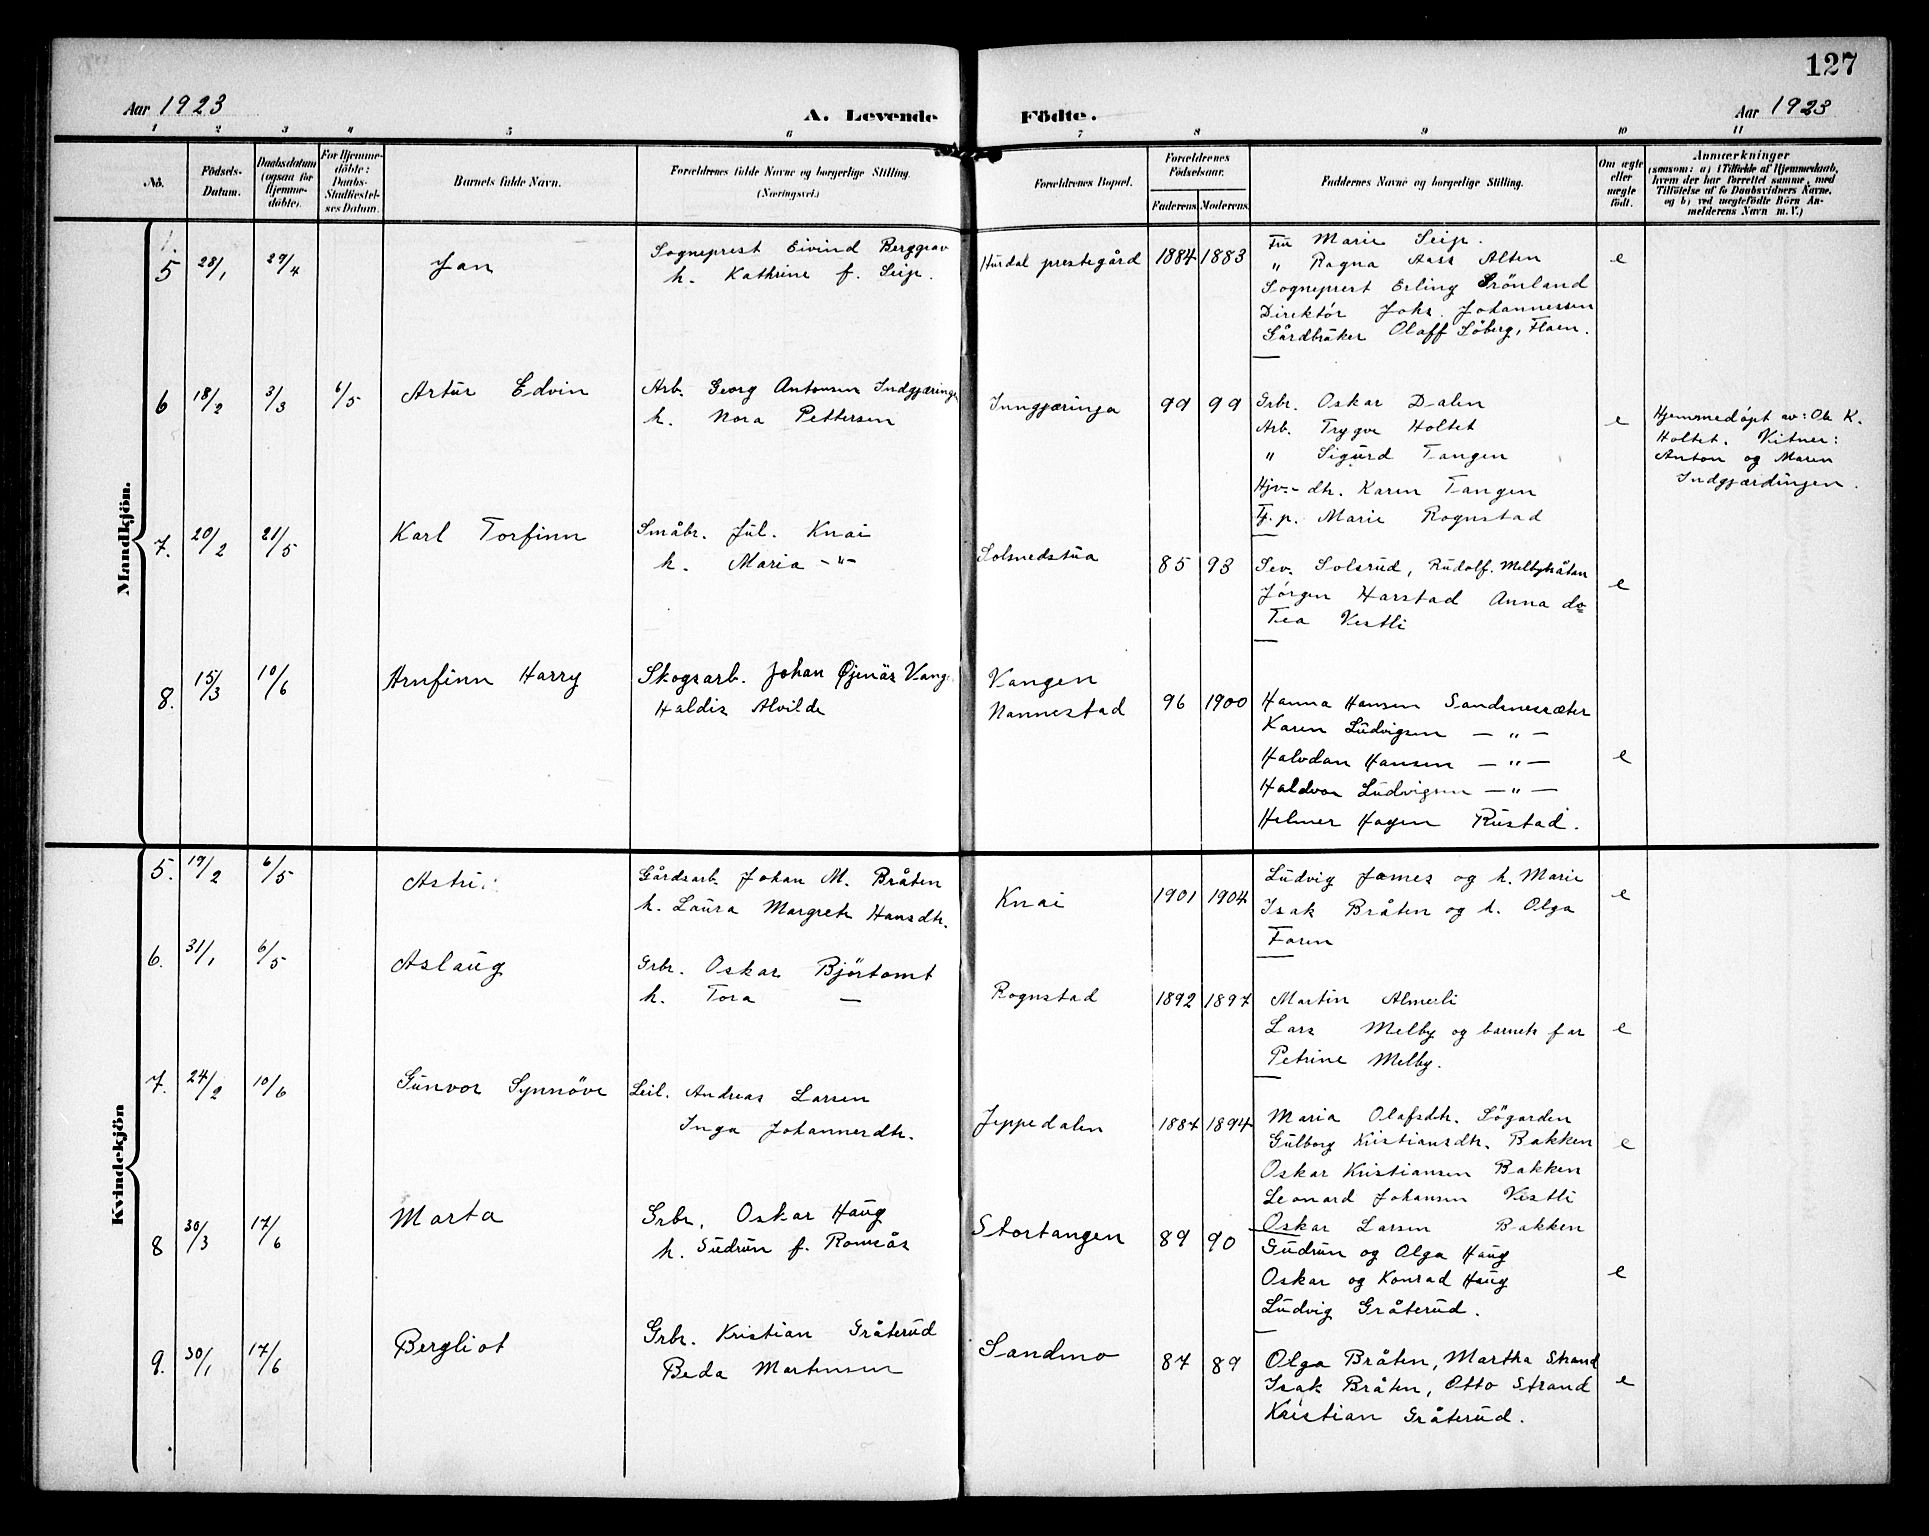 127
Aar 1923
A. Levende Födte.
Aar 1923
1 2 3 4 5 6 7 8 9 10 11
No.
Födsels-Datum.
Daabsdatum (ogsaa for Hjemme-döbte).
For Hjemme-döbte: Daabs-Stadfæstel-ses Datum.
Barnets fulde Navn.
Forældrenes fulde Navne og borgerlige Stilling.
(Næringsvei.)
Forældrenes Bopæl.
Forældrenes Födselsaar.
Faderens. Moderens.
Faddernes Navne og borgerlige Stilling.
Om ægte eller uægte födt.
Anmærkninger
(saasom: a) i Tilfælde af Hjemmedaab,
hvem der har forrettet samme, med
Tilföielse af to Daabsvidners Navne,
og b) ved uægtefödte Börn An-
melderens Navn m. V.)
Mandkjön.
5 28/1 29/4 Jan
Sogneprest Eivind Berggrav
h. Kathrine f. Seip.
Hurdal prestegård 1884 1883
Fru Marie Seip.
" Ragna Aass Alten
Sogneprest Erling Grönland
Direktör Johs. Johannessen
Gårdbruker Olaff Söberg, Flaen.
e
6 18/2 3/3 6/5 Artur Edvin
Arb. Georg Antonsen Indgjæringe
h. Nora Pettersen
Inngjæringa 99 99
Grbr. Oskar Dalen
Arb. Trygve Holtet
" Sigurd Tangen
Hjv.- dtr. Karen Tangen
Tj. p. Marie Rognstad
e
Hjemmedöpt av: Ole K.
Holtet. Vitner:
Anton og Maren
Indgjærdingen.
7. 20/2 21/5 Karl Torfinn
Småbr. Jul. Knai
h. Maria - " -
Solsnedstua 85 93
Sev. Solsrud, Rudolf Melbybråtan
Jörgen Harstad Anna do
Tea Vestli
e
8. 15/3 10/6 Arnfinn Harry
Skogsarb. Johan Øjenäs Vang.
Haldis Alvilde
Vangen
Nannestad 96 1900
Hanna Hansen Sandsnessæter
Karen Ludvigsen — " —
Halvdan Hansen — " —
Haldvor Ludvigsen — " —
Helmer Hagen Rustad.
e
Kvindekjön
5. 19/2 6/5 Astri
Gårdsarb. Johan M. Bråten
h. Laura Margrete Hansdtr.
Knai 1901 1904
Ludvig James og h. Marie
Isak Bråten og h. Olga
Faren
e
6. 31/1 6/5 Aslaug
Grbr. Oskar Björtomt
h. Tora —
Rognstad 1892 1897
Martin Almerli
Lars Melby og barnets far
Petrine Melby.
e
7. 24/2 10/6 Gunvor Synnöve
Leil. Andreas Larsen
Inga Johannesdtr.
Jeppedalen 1887 1894
Maria Olafsdtr. Sögarden
Gulborg Kristiansdtr. Bakken
Oskar Kristiansen Bakken
Leonard Johansen Vestli
Oskar Larsen Bakken
e
8 30/3 17/6 Marta
Grbr. Oskar Haug
h. Gudrun f. Romsås
Stortangen 89 90
Gudrun og Olga Haug
Oskar og Konrad Haug
Ludvig Gråterud.
e
9. 30/1 17/6 Bergliot
Grbr. Kristian Gråterud
Beda Martensen
Sandmo 87 89
Olga Bråten, Martha Strand
Isak Bråten, Otto Strand
Kristian Gråterud.
e